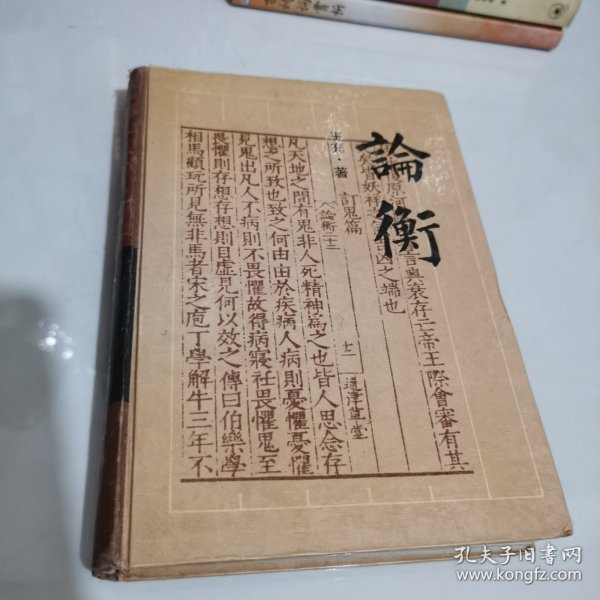 論衡
王充·著
言與衰存亡帝王際會審有其
凶之端也
訂鬼篇
凡天地之間有鬼非人死精神為之也皆人思念存
想之所致也致之何由由於疾病人病則憂懼憂懼
見鬼出凡人不病則不畏懼故得病寢衽畏懼鬼至
畏懼則存想存想則目虛見何以效之傳曰伯樂學
相馬顧玩所見無非馬者宋之庖丁學解牛三年不
論衡二十二
十二
通津草堂
孔夫子旧书网
www.kongfz.com